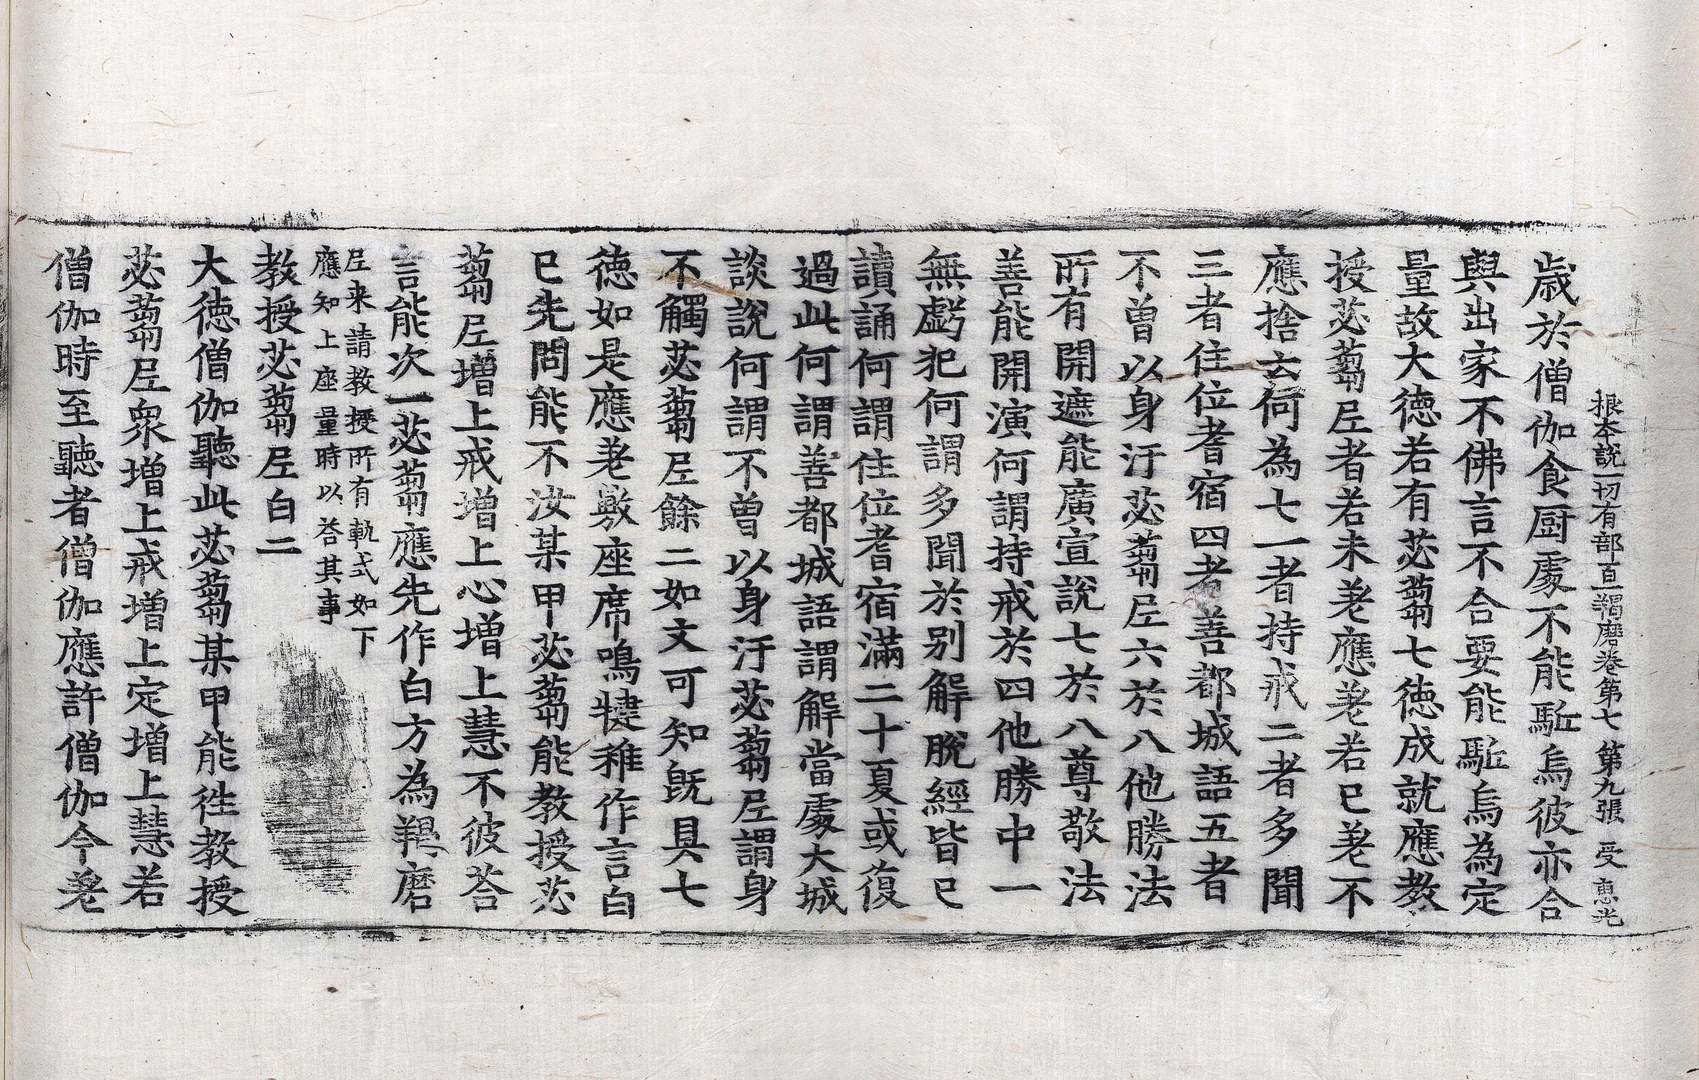 根本說一切有部百一羯磨卷第七　第九張　受　惠光
歲於僧伽食厨處不能駈烏彼亦合
與出家不佛言不合要能駈烏為定
量故大德若有苾蒭七德成就應教
授苾蒭尼者若未差應差若已差不
應捨云何為七一者持戒二者多聞
三者住位耆宿四者善都城語五者
不曾以身汙苾蒭尼六於八他勝法
所有開遮能廣宣說七於八尊敬法
善能開演何謂持戒於四他勝中一
無虧犯何謂多聞於别解脫經皆已
讀誦何謂住位耆宿滿二十夏或復
過此何謂善都城語謂解當處大城
談說何謂不曾以身汙苾蒭尼謂身
不觸苾蒭尼餘二如文可知既具七
德如是應差敷座席鳴揵稚作言白
已先問能不汝某甲苾蒭能教授苾
蒭尼增上戒增上心增上慧不彼荅
言能次一苾蒭應先作白方為羯磨
尼来請教授所有軌式如下
應知上座量時以荅其事
教授苾蒭尼白二
大德僧伽聽此苾蒭某甲能往教授
苾蒭尼衆增上戒增上定增上慧若
僧伽時至聽者僧伽應許僧伽今差